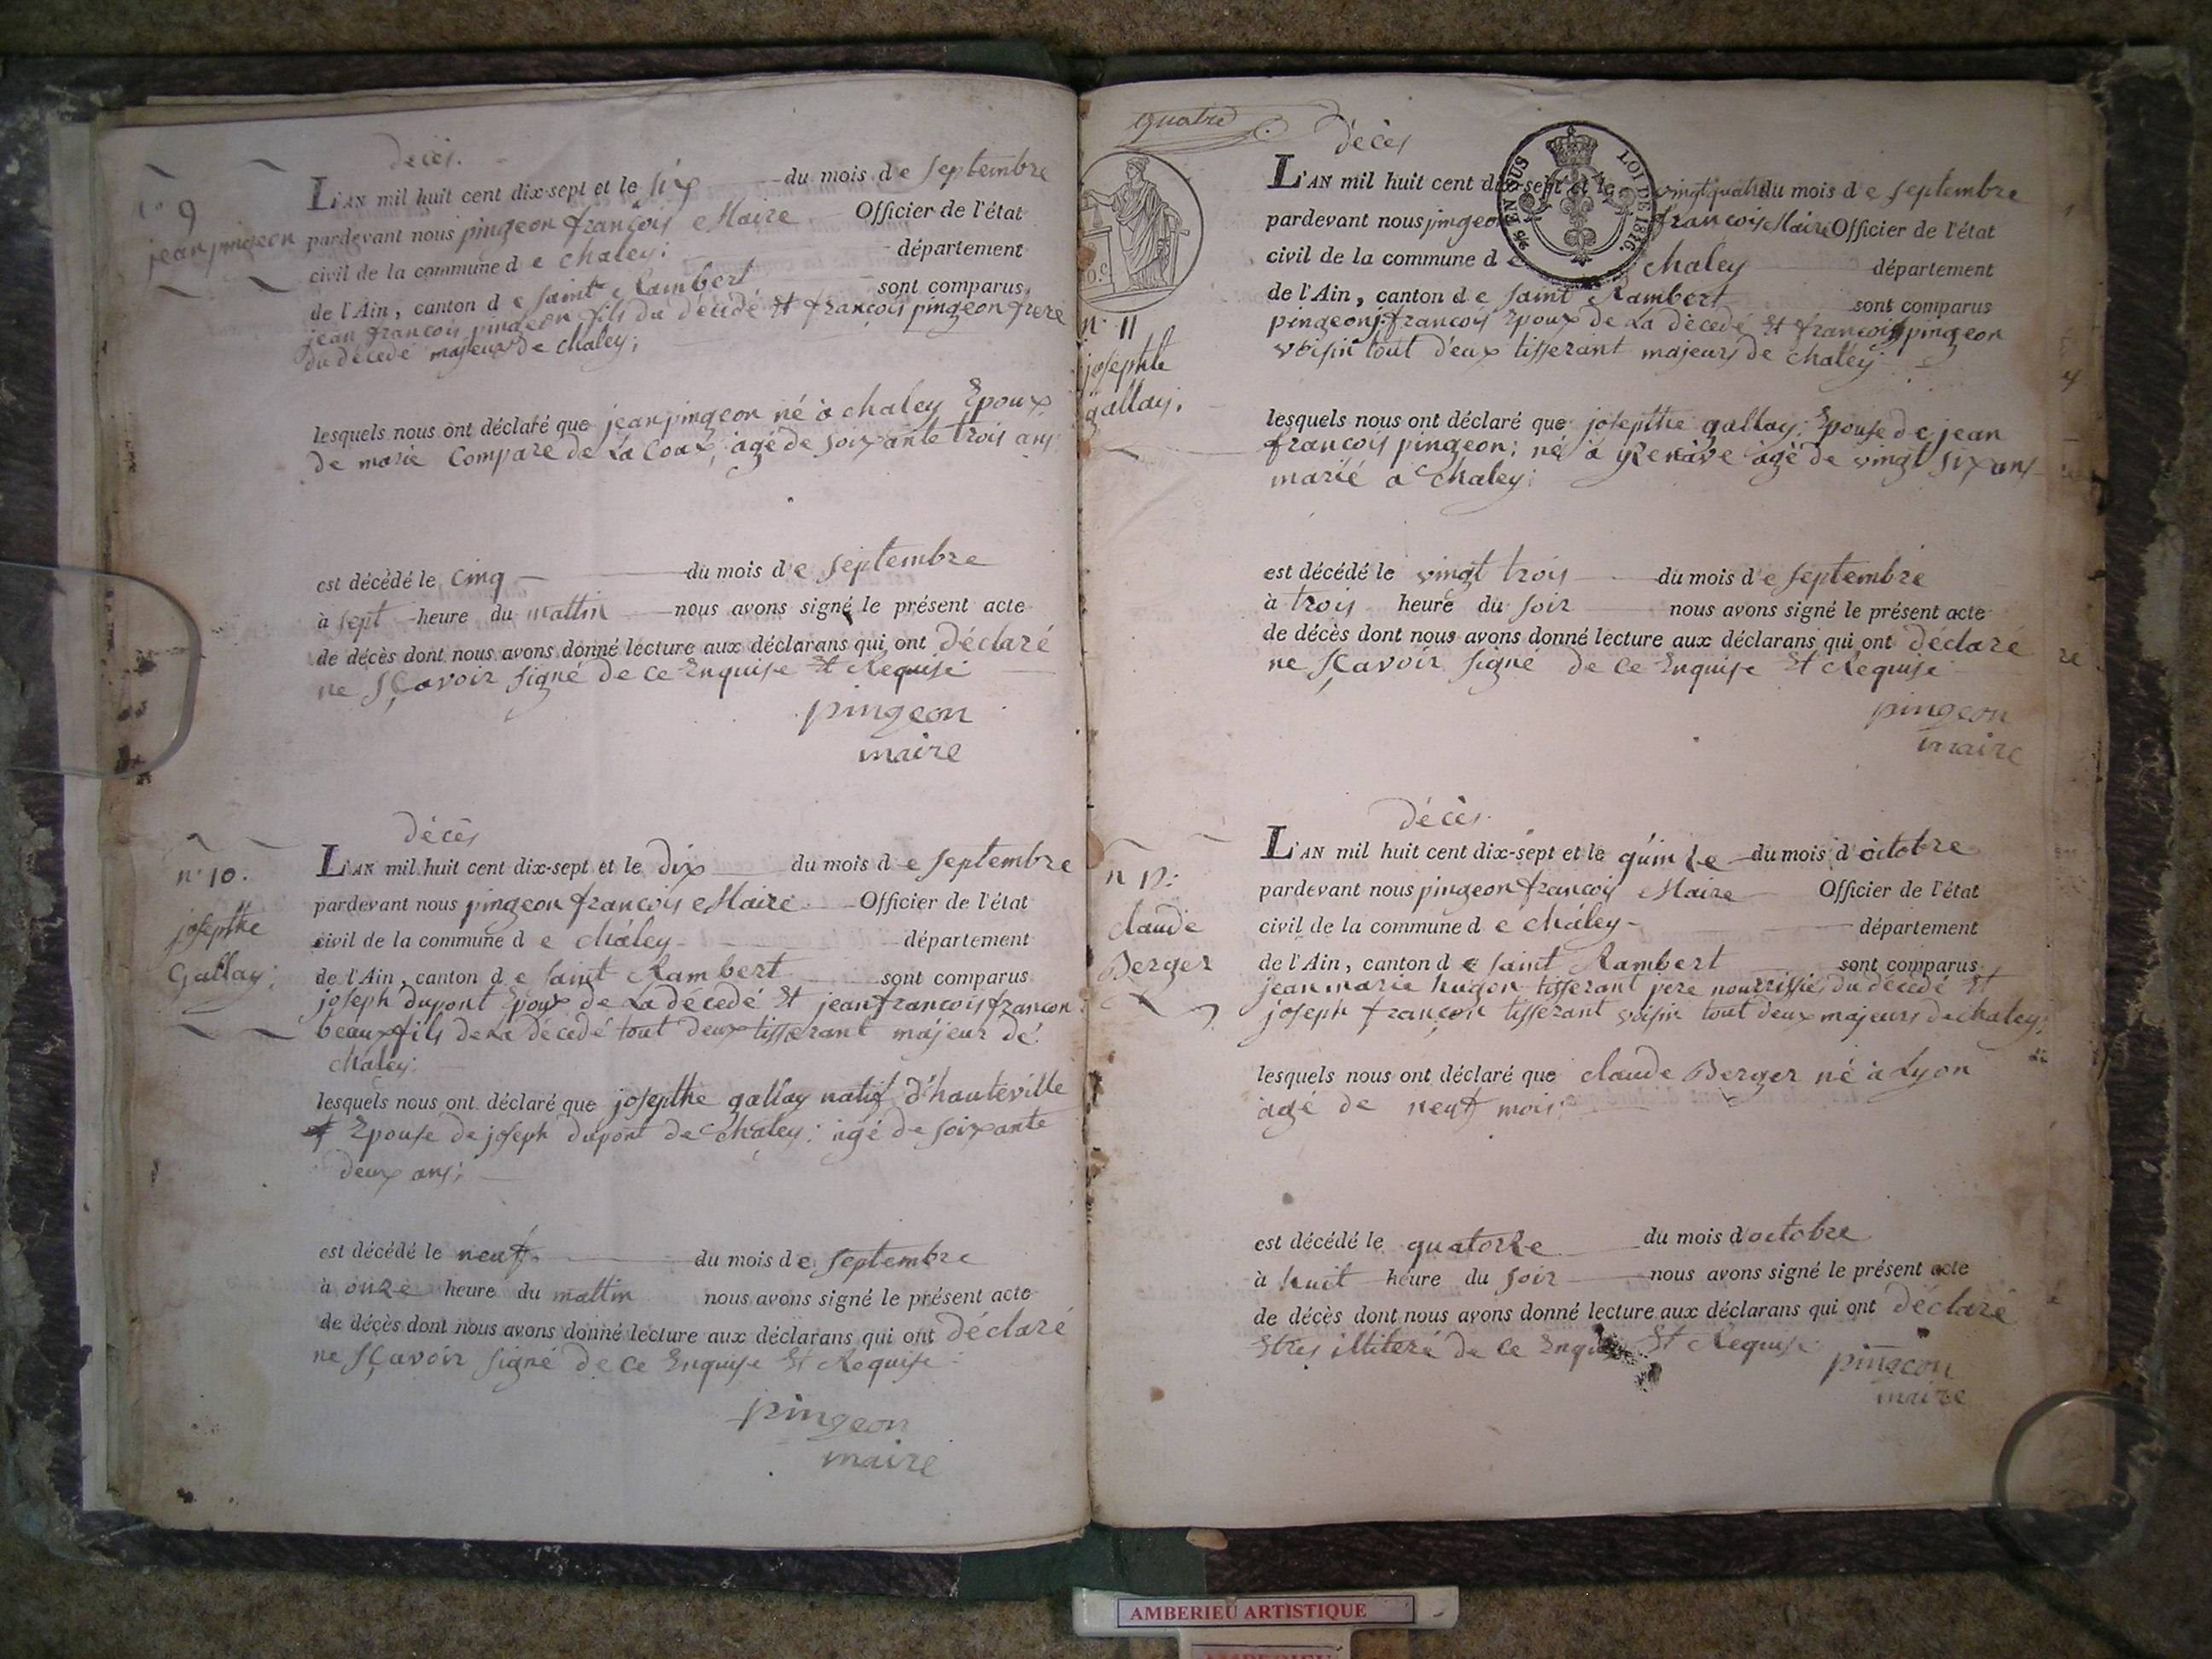 décès.
n° 9
jean pingeon
L'AN mil huit cent dix-sept et le six du mois de septembre
pardevant nous pingeon françois Maire Officier de l'état
civil de la commune de chaley; département
de l'Ain, canton de saint Rambert sont comparus
jean françois pingeon fils du décédé Et françois pingeon frere
du décédé majeurs de chaley;
lesquels nous ont déclaré que jean pingeon né à chaley Epoux
de marie Compare de La Coux, agé de soixante trois ans
est décédé le cinq du mois de septembre
à sept heure du mattin nous avons signé le présent acte
de décès dont nous avons donné lecture aux déclarans qui ont déclaré
ne sçavoir signé de ce Enquise Et Requise
pingeon
maire
décès
n° 10.
josepthe
Gallay;
L'AN mil huit cent dix-sept et le dix du mois de septembre
pardevant nous pingeon françois Maire Officier de l'état
civil de la commune de chaley département
de l'Ain, canton de saint Rambert sont comparus
joseph dupont Epoux de La décedé Et jean francois francon
beaux fils de La décedé tout deux tisserant majeur de
chaley;
lesquels nous ont déclaré que josepthe gallay natif d'hauteville
Epouse de joseph dupont de chaley; agé de soixante
deux ans;
est décédé le neuf du mois de septembre
à onze heure du mattin nous avons signé le présent acte
de décès dont nous avons donné lecture aux déclarans qui ont déclaré
ne sçavoir signé de ce Enquise Et Requise
pingeon
maire
quatre
décès
EN SUS LOI DE 1816.
n° 11
josephte
gallay.
L'AN mil huit cent dix-sept et le vingt quatre du mois de septembre
pardevant nous pingeon francois Maire Officier de l'état
civil de la commune de chaley département
de l'Ain, canton de saint Rambert sont comparus
pingeon j. francois Epoux de La décedé Et francois pingeon
voisin tout d'eux tisserant majeurs de chaley
lesquels nous ont déclaré que josepthe gallay; Epouse de jean
francois pingeon; né à agé de vingt six ans
marié a chaley;
est décédé le vingt trois du mois de septembre
à trois heure du soir nous avons signé le présent acte
de décès dont nous avons donné lecture aux déclarans qui ont déclaré
ne sçavoir signé de ce Enquise Et Requise
pingeon
maire
décès.
n 12:
claude
Berger
L'AN mil huit cent dix-sept et le quinze du mois d'octobre
pardevant nous pingeon francois Maire Officier de l'état
civil de la commune de chaley département
de l'Ain, canton de saint Rambert sont comparus
jean marie hugon tisserant pere nourrissier du décedé Et
joseph françon tisserant voisin tout deux majeurs de chaley;
lesquels nous ont déclaré que claude Berger né à Lyon
agé de neuf mois;
est décédé le quatorze du mois d'octobre
à huit heure du soir nous avons signé le présent acte
de décès dont nous avons donné lecture aux déclarans qui ont déclaré
Etres illiteré de ce Enquise Et Requise
pingeon
maire
AMBERIEU ARTISTIQUE